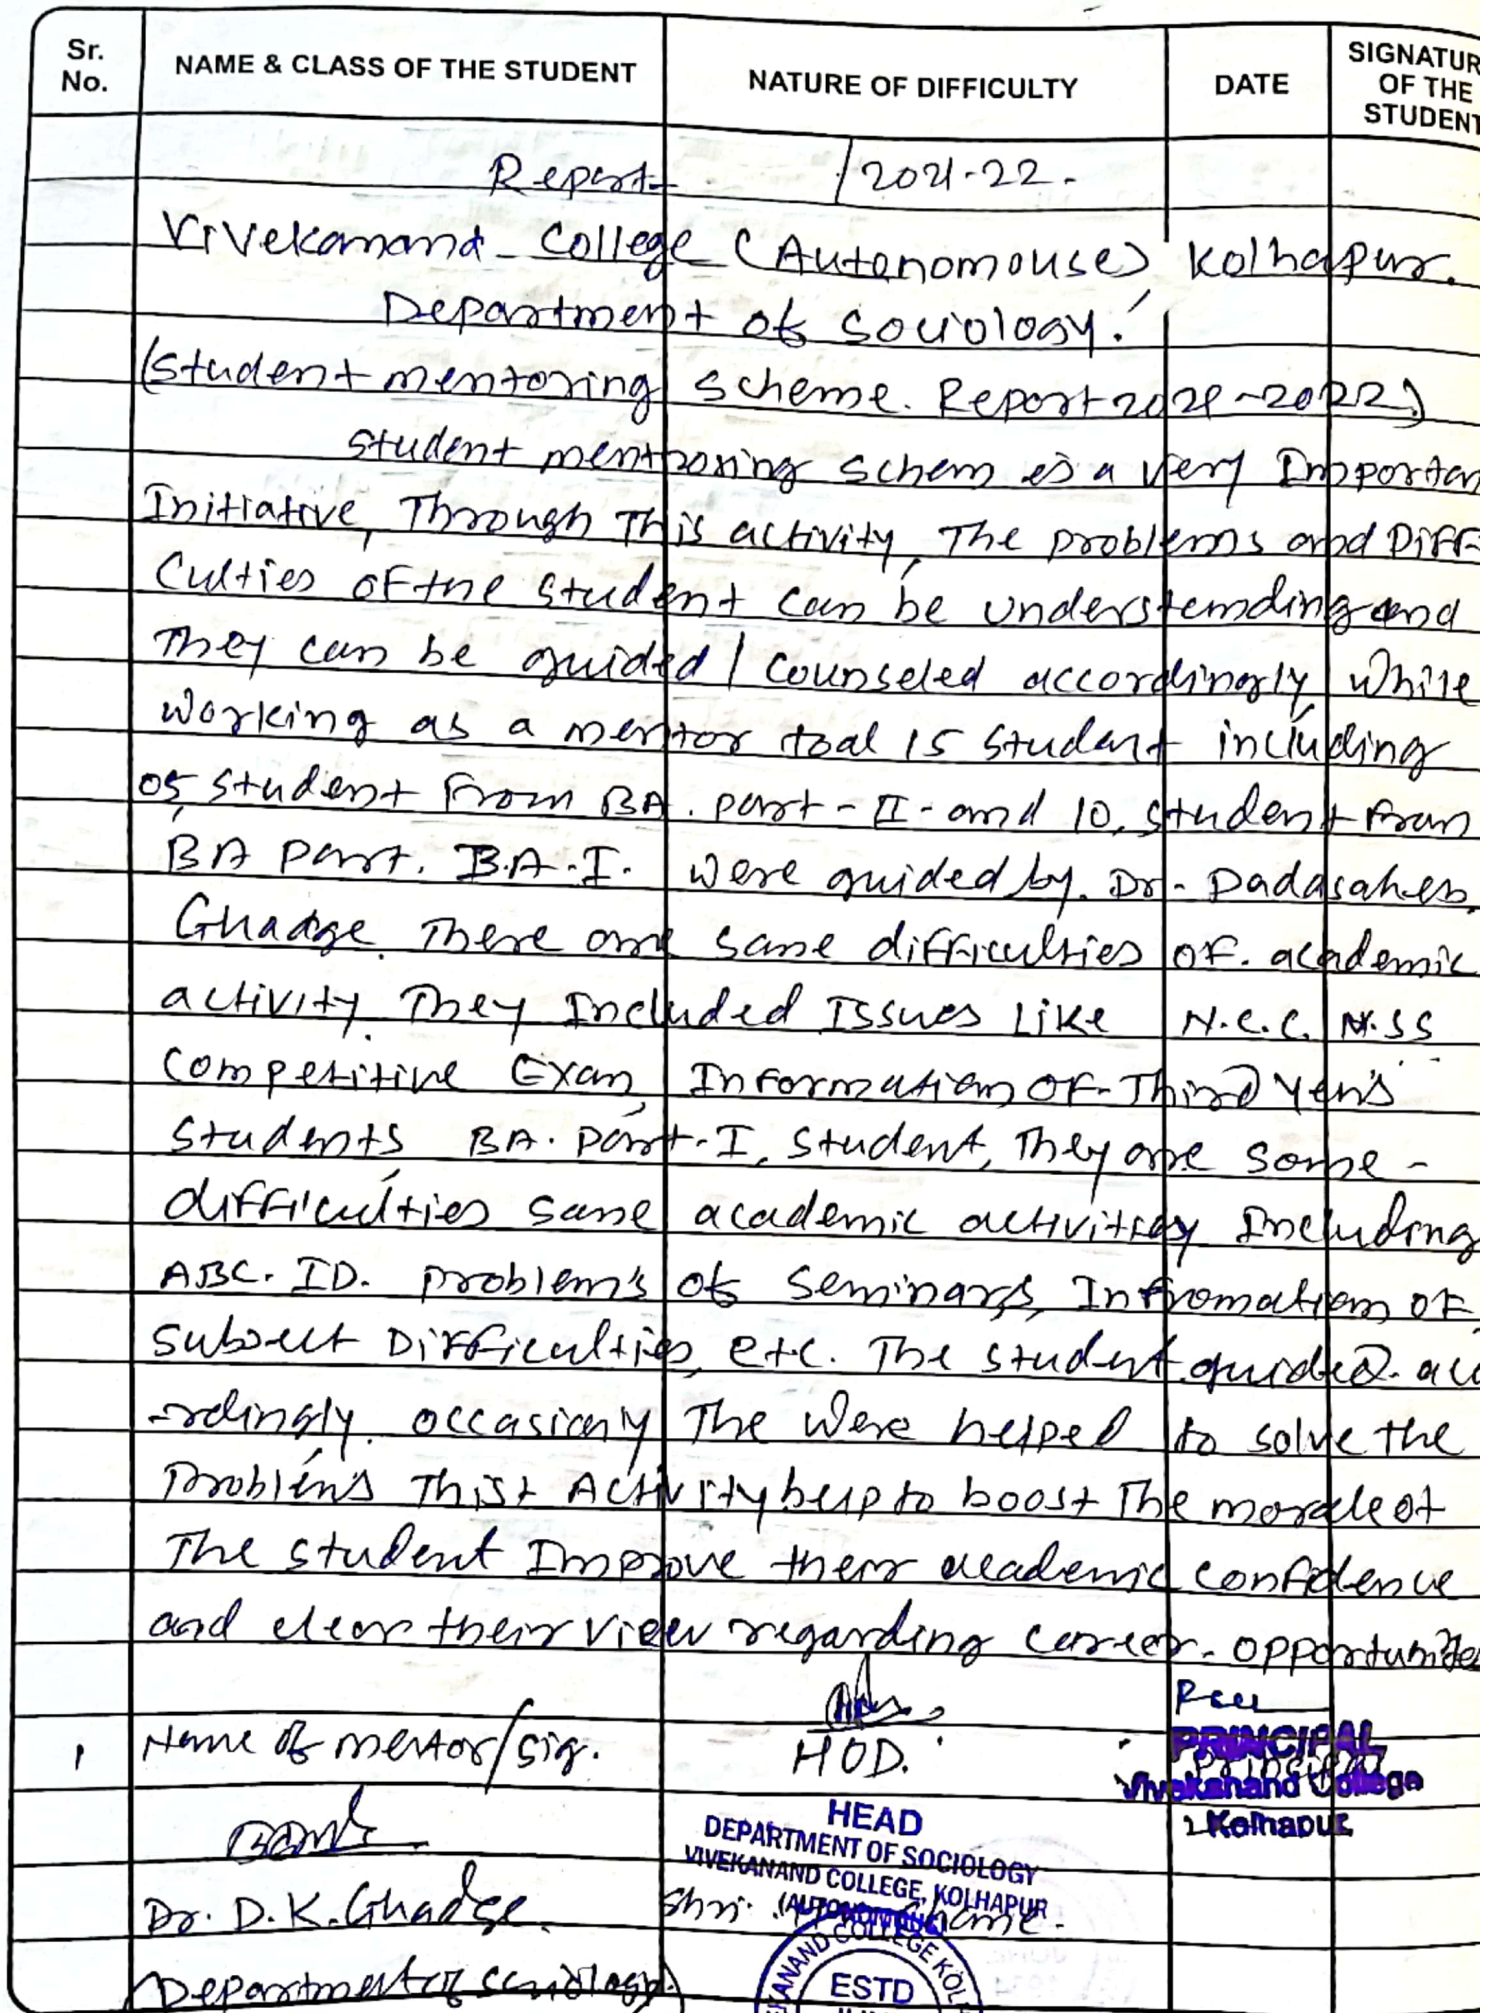 Sr. No.
NAME & CLASS OF THE STUDENT
NATURE OF DIFFICULTY
DATE
SIGNATUR
OF THE
STUDENT
Report 2021-22.
Vivekanand College (Autonomouse) Kolhapur.
Department of Sociology.
(Student mentoring scheme. Report 2021-2022)
Student mentroring schem is a very Importan
Initiative, Through This activity, The problems and Diffi
Culties of the student can be understanding and
They can be guided / counseled accordingly while
working as a mentor toal 15 student including
05, student From BA. part - II - and 10, student from
BA Part. B.A-I. were guided by. Dr. Dadasaheb
Ghadge. There are same difficulties of. academic
activity. They Included Issues Like N.C.C. N.SS
Competitive Exam, Information OF-Third Yer's
students BA. Part-I, student, They are some -
difficulties same academic activities Including
ABC. ID. problem's of seminars, Infromation OF,
Subject Difficulties, etc. The student guided. acc
-rdingly. occasionly The were helped to solve the
Problem's This Activity help to boost The morale of
The student Improve their academic confidence
and clear their view regarding career. opportunities
1 Name of mentor/sig. HOD.
PRINCIPAL
Principal
Vivekanand College
Kolhapur
HEAD
DEPARTMENT OF SOCIOLOGY
VIVEKANAND COLLEGE, KOLHAPUR
(AUTONOMOUS)
Dr. D.K. Ghadge. Shri.
Department of sociology.
EKANAND COLLEGE KOL
ESTD